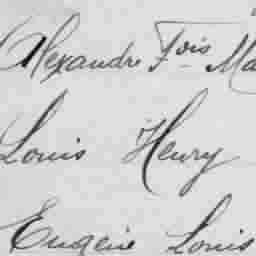 Alexandre Fois Ma
Louis Henry
Eugène Louis